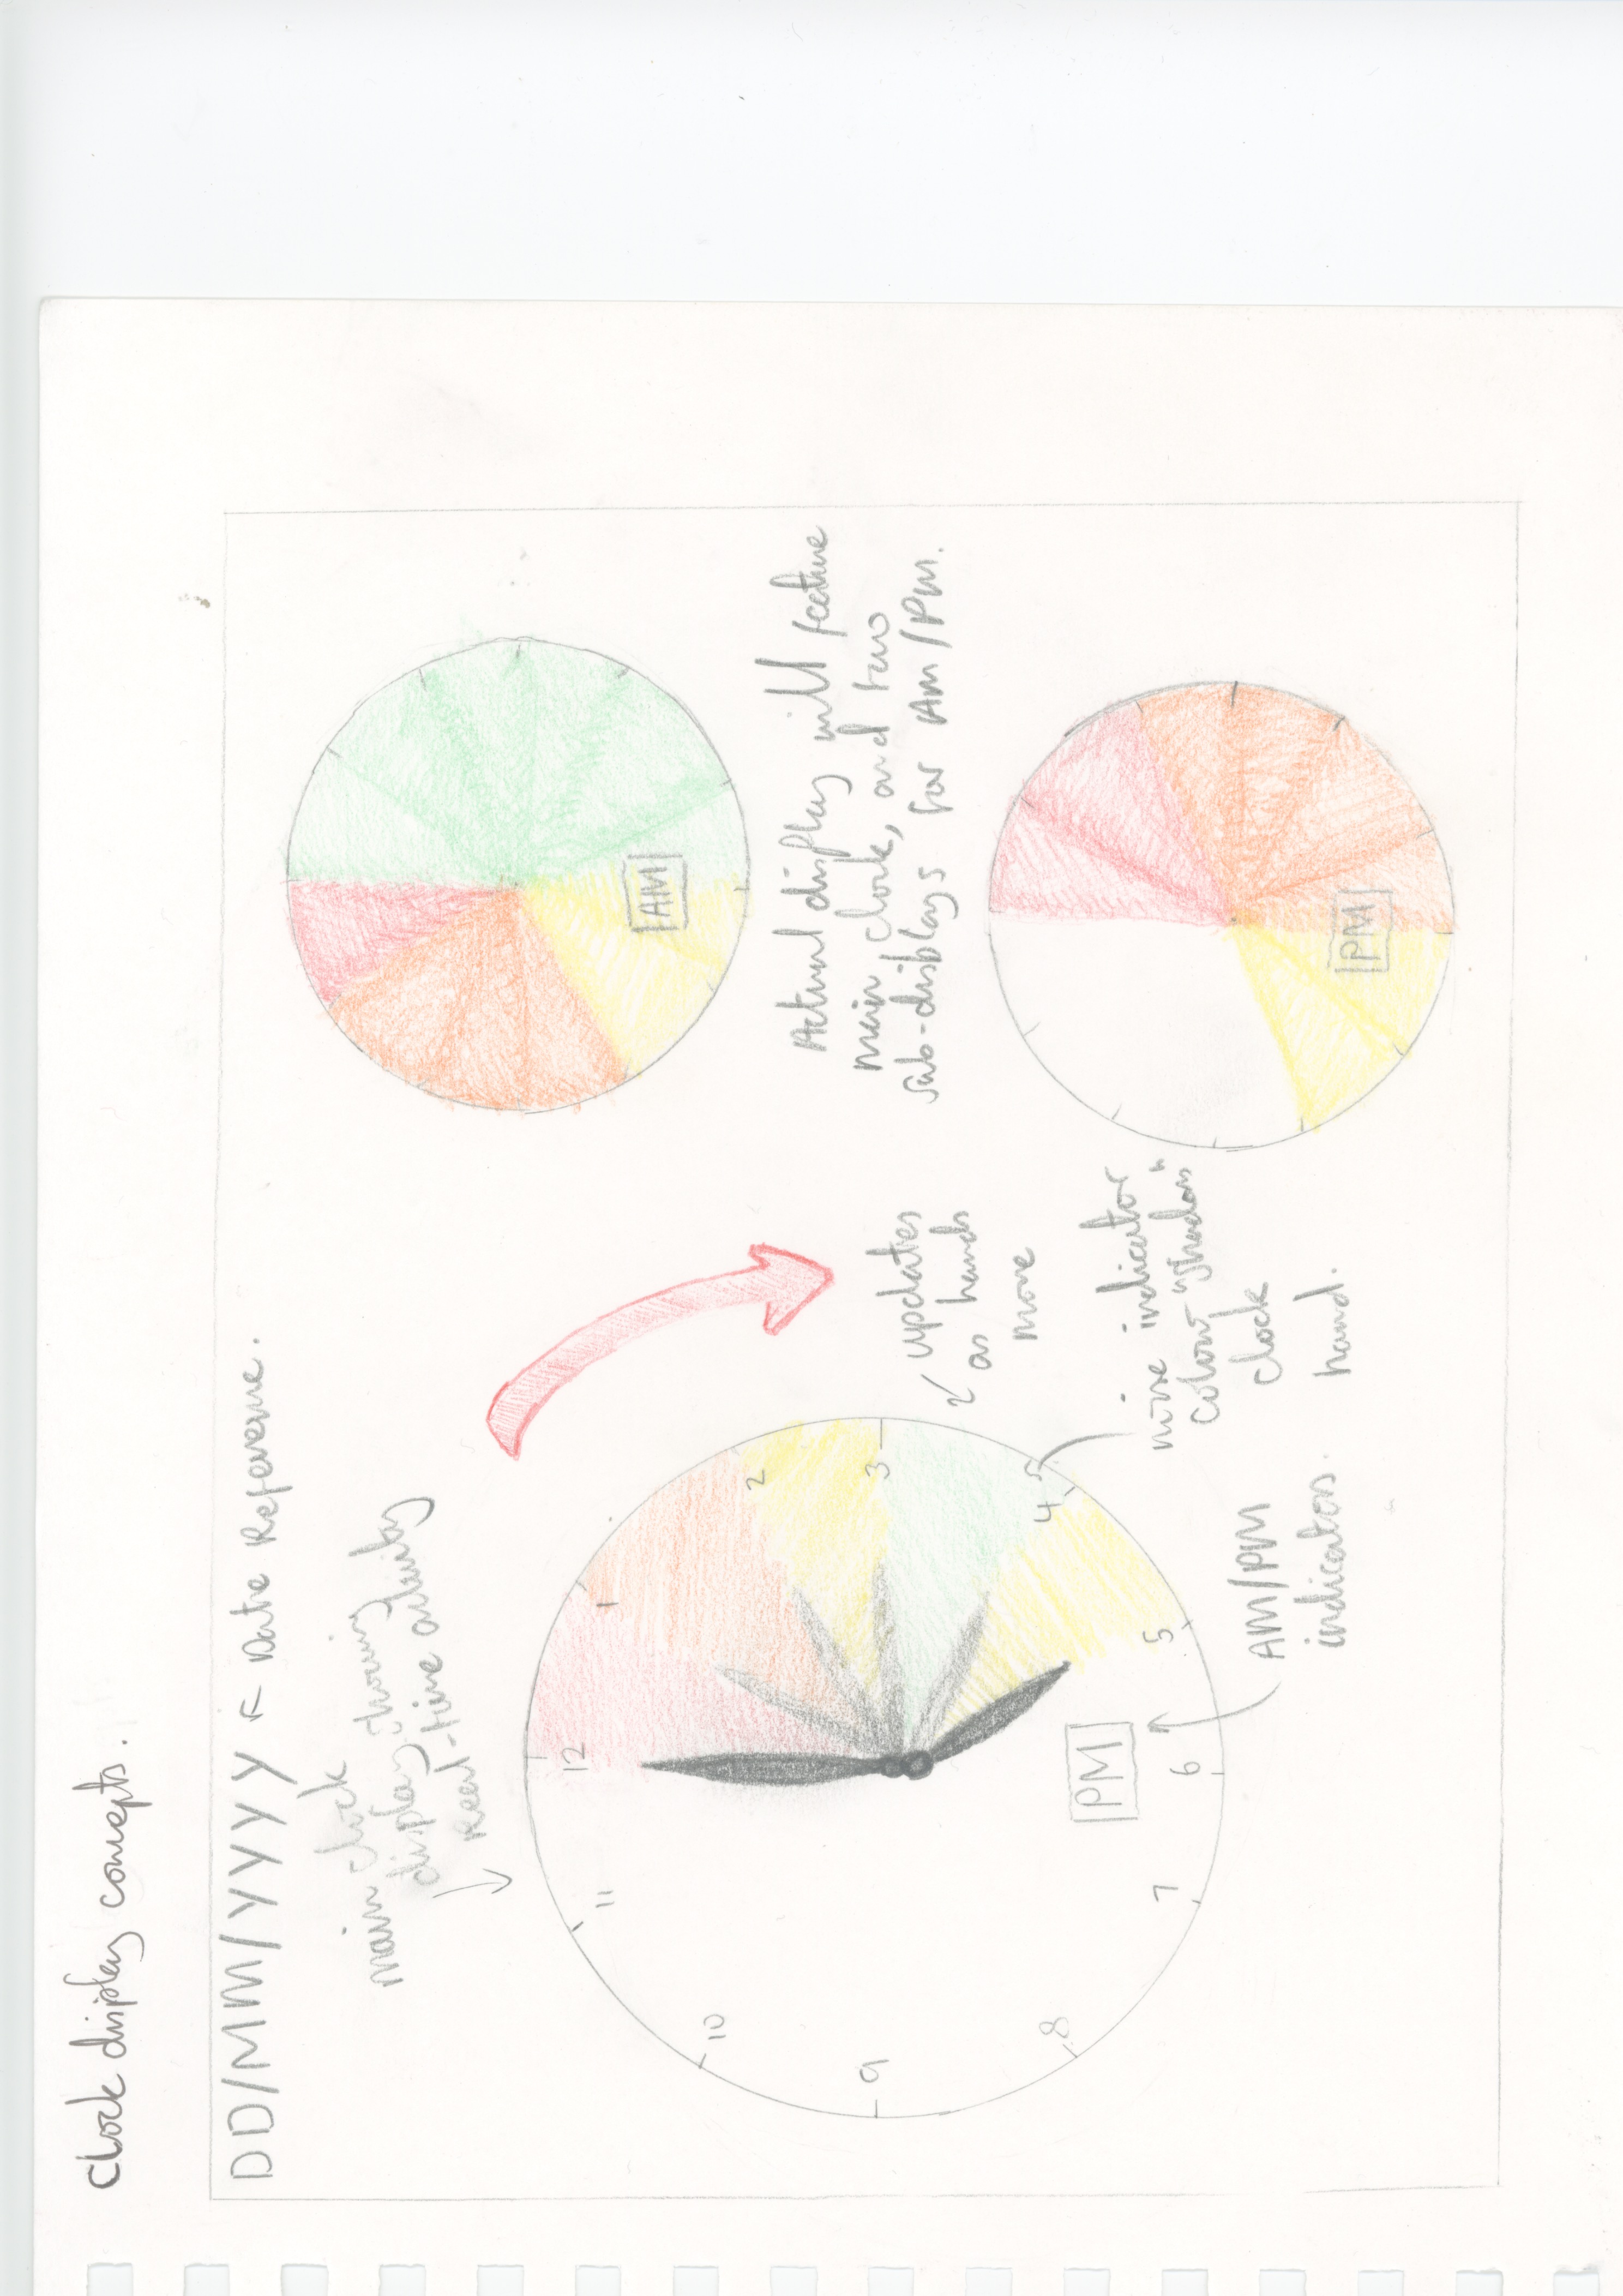 Clock display concepts.
DD/MM/YYYY ← Date Reference.
main clock
display showing
real-time activity
12
1
2
3
4
5
5
6
7
8
9
10
11
PM
updates
as hands
move
noise indicator
colour "shadows"
clock
hand.
AM/PM
indicators.
AM
Actual display will feature
main clock, and two
sub-displays for AM/PM.
PM